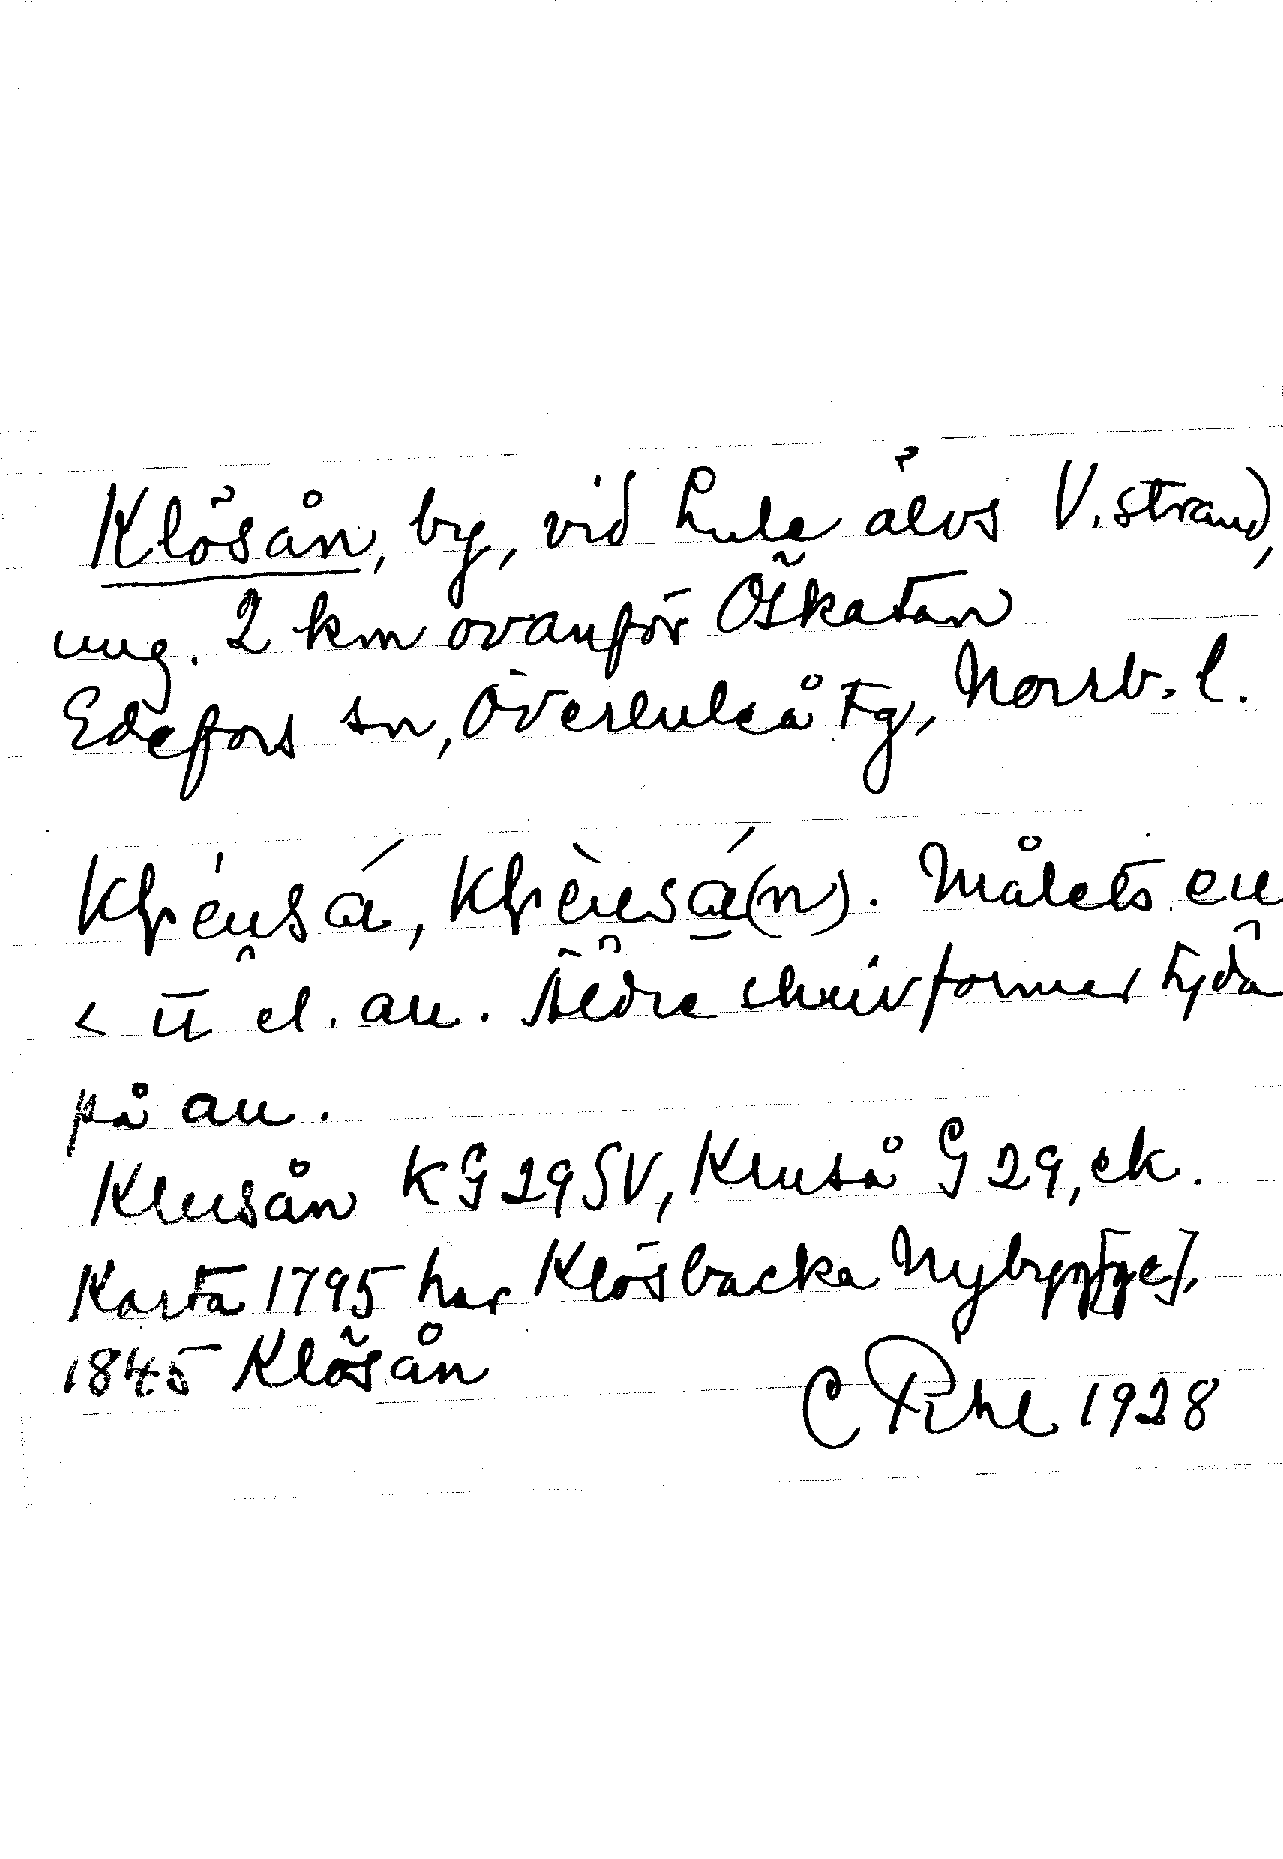 Klösån, by, vid Lule älvs V. strand,
ung. 2 km ovanför Öskatan
Edefors sn, Överluleå tg, Norrb. l.
Målets eu
< ū el. au. Äldre skrivformer tyda
på au.
Klusån KG 29 SV, Kluså G 29, ek.
Karta 1795 har Klösbacka Nybygg[ge],
1845 Klösån
C Pihl 1928